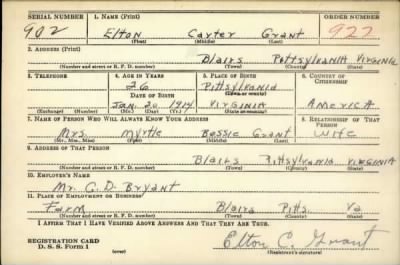 SERIAL NUMBER 1. NAME (Print) ORDER NUMBER
902 Elton Carter Grant 927
(First) (Middle) (Last)
2. ADDRESS (Print)
Blairs Pittsylvania Virginia
(Number and street or R. F. D. number) (Town) (County) (State)
3. TELEPHONE 4. AGE IN YEARS 5. PLACE OF BIRTH 6. COUNTRY OF CITIZENSHIP
26 Pittsylvania
DATE OF BIRTH
Jan. 20 1914 Virginia America
(Exchange) (Number) (Mo.) (Day) (Yr.) (State or country)
7. NAME OF PERSON WHO WILL ALWAYS KNOW YOUR ADDRESS 8. RELATIONSHIP OF THAT PERSON
Mrs. Myrtle Bessie Grant Wife
(Mr., Mrs., Miss) (First) (Middle) (Last)
9. ADDRESS OF THAT PERSON
Blairs Pittsylvania Virginia
(Number and street or R. F. D. number) (Town) (County) (State)
10. EMPLOYER'S NAME
Mr. C. D. Bryant
11. PLACE OF EMPLOYMENT OR BUSINESS
Farm Blairs Pitts. Va
(Number and street or R. F. D. number) (Town) (County) (State)
I AFFIRM THAT I HAVE VERIFIED ABOVE ANSWERS AND THAT THEY ARE TRUE.
REGISTRATION CARD
D. S. S. Form 1 (over) Elton C. Grant
(Registrant's signature)